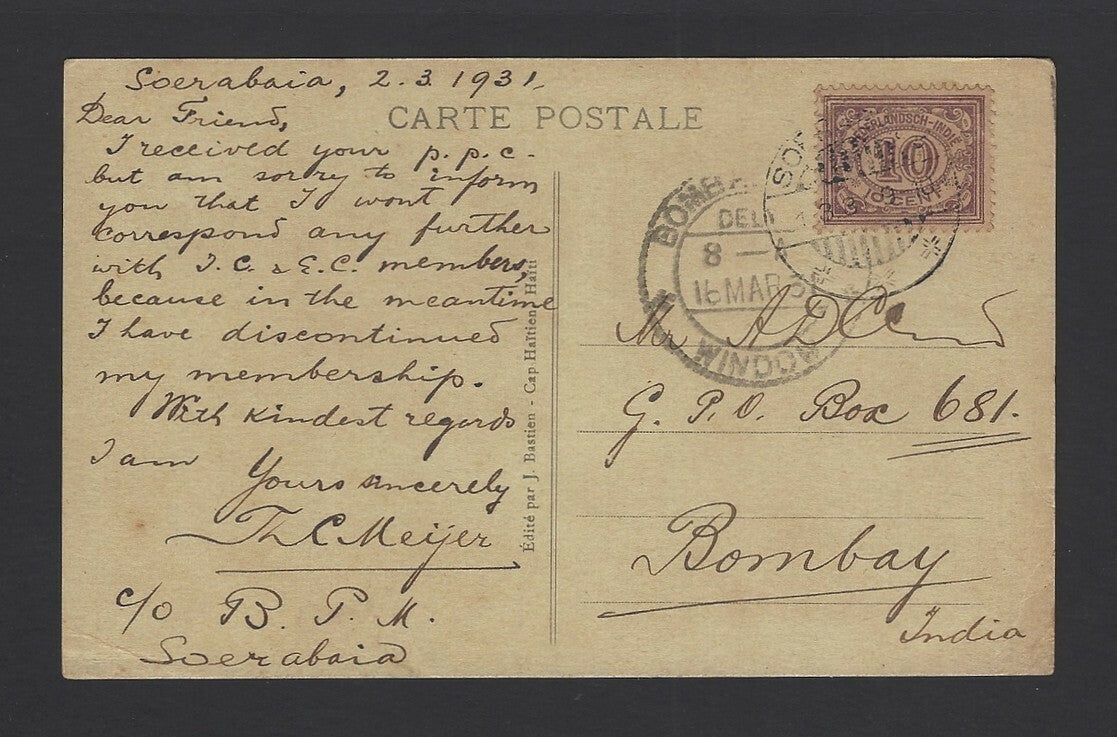 Soerabaia, 2.3.1931.
Dear Friend,
I received your p.p.c.
but am sorry to inform
you that I wont
correspond any further
with I.C. & E.C. members,
because in the meantime
I have discontinued
my membership.
With kindest regards
I am
Yours sincerely
Th C Meijer
c/o B. P. M.
Soerabaia
CARTE POSTALE
Édité par J. Bastien - Cap Haïtien Haïti
NEDERLANDSCH-INDIE
10
10 CENT
BOMBAY
DEL
8 —
16 MAR
WINDOW
Mr A D
G. P. O. Box 681.
Bombay
India